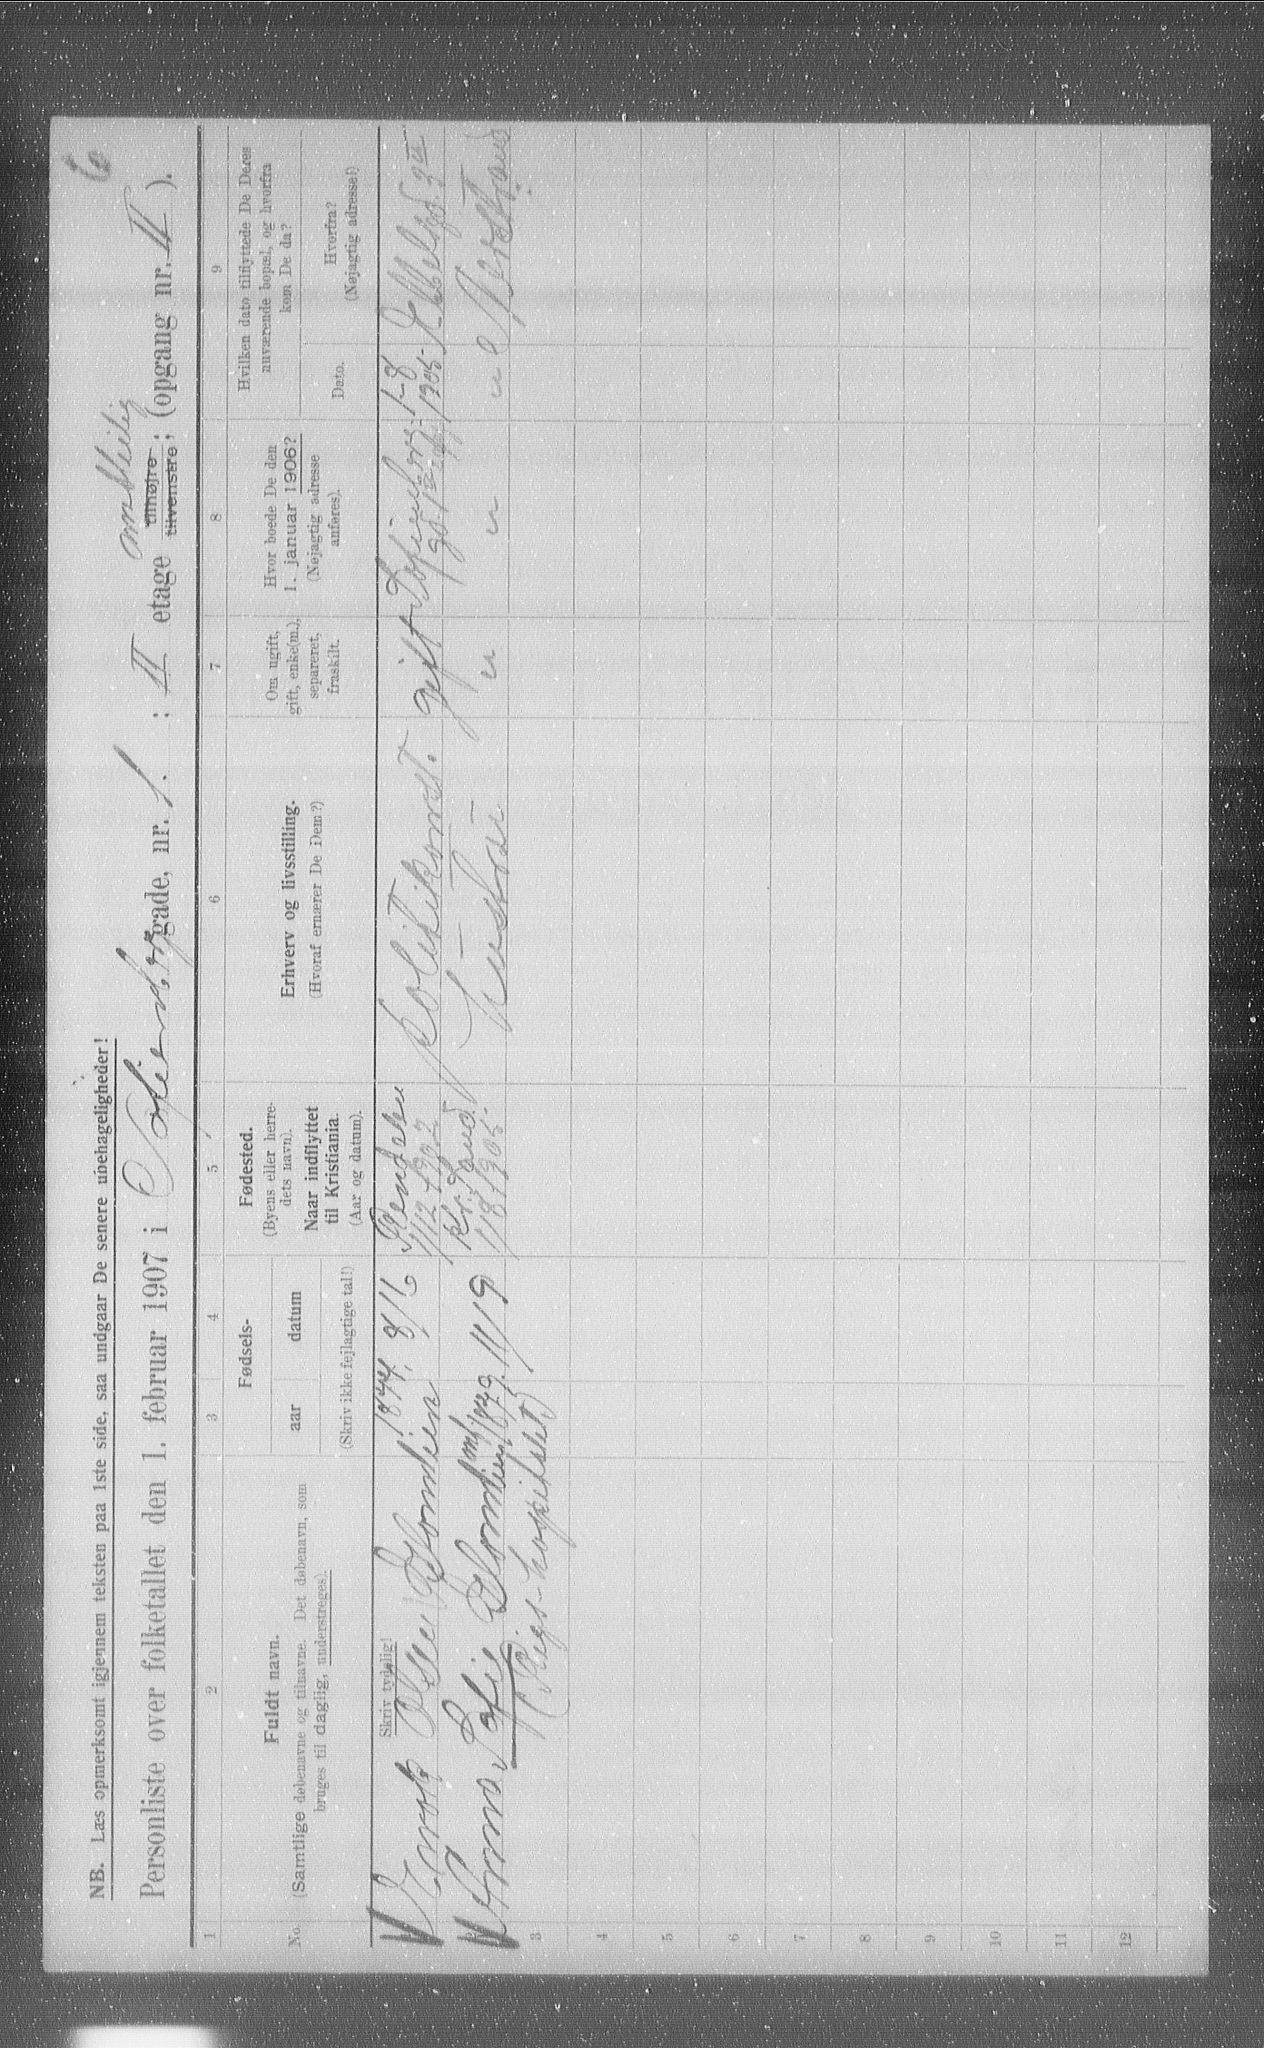 6
NB. Læs opmerksomt igjennem teksten paa 1ste side, saa undgaar De senere ubehageligheder!
Personliste over folketallet den 1. februar 1907 i Sofienberggade, nr. 1. ; II etage tilhøjre tilvenstre ; (opgang nr. II ).
1 2 3 4 5 6 7 8 9
No.
Fuldt navn.
(Samtlige døbenavne og tilnavne. Det døbenavn, som
bruges til daglig, understreges).
Fødsels-
aar datum
(Skriv ikke fejlagtige tal!)
Fødested.
(Byens eller herre-
dets navn).
Naar indflyttet
til Kristiania.
(Aar og datum).
Erhverv og livsstilling.
(Hvoraf ernærer De Dem?)
Om ugift,
gift, enke(m.),
separeret,
fraskilt.
Hvor boede De den
1. januar 1906?
(Nøjagtig adresse
anføres).
Hvilken dato tilflyttede De Deres
nuværende bopæl, og hvorfra
kom De da?
Dato.
Hvorfra?
(Nøjagtig adresse!)
Skriv tydelig!
Olsen Blomlien 1874. 8/6 Rendalen Politikonst. gift Sofienberg- 1-8
1/12-1902 1905
2 Anna Sofie Blomlien 1879. 11/9 Kr.sand. Hustru " " "
1/8 1905.
(Rigs-hospitalet)
3
4
5
6
7
8
9
10
11
12